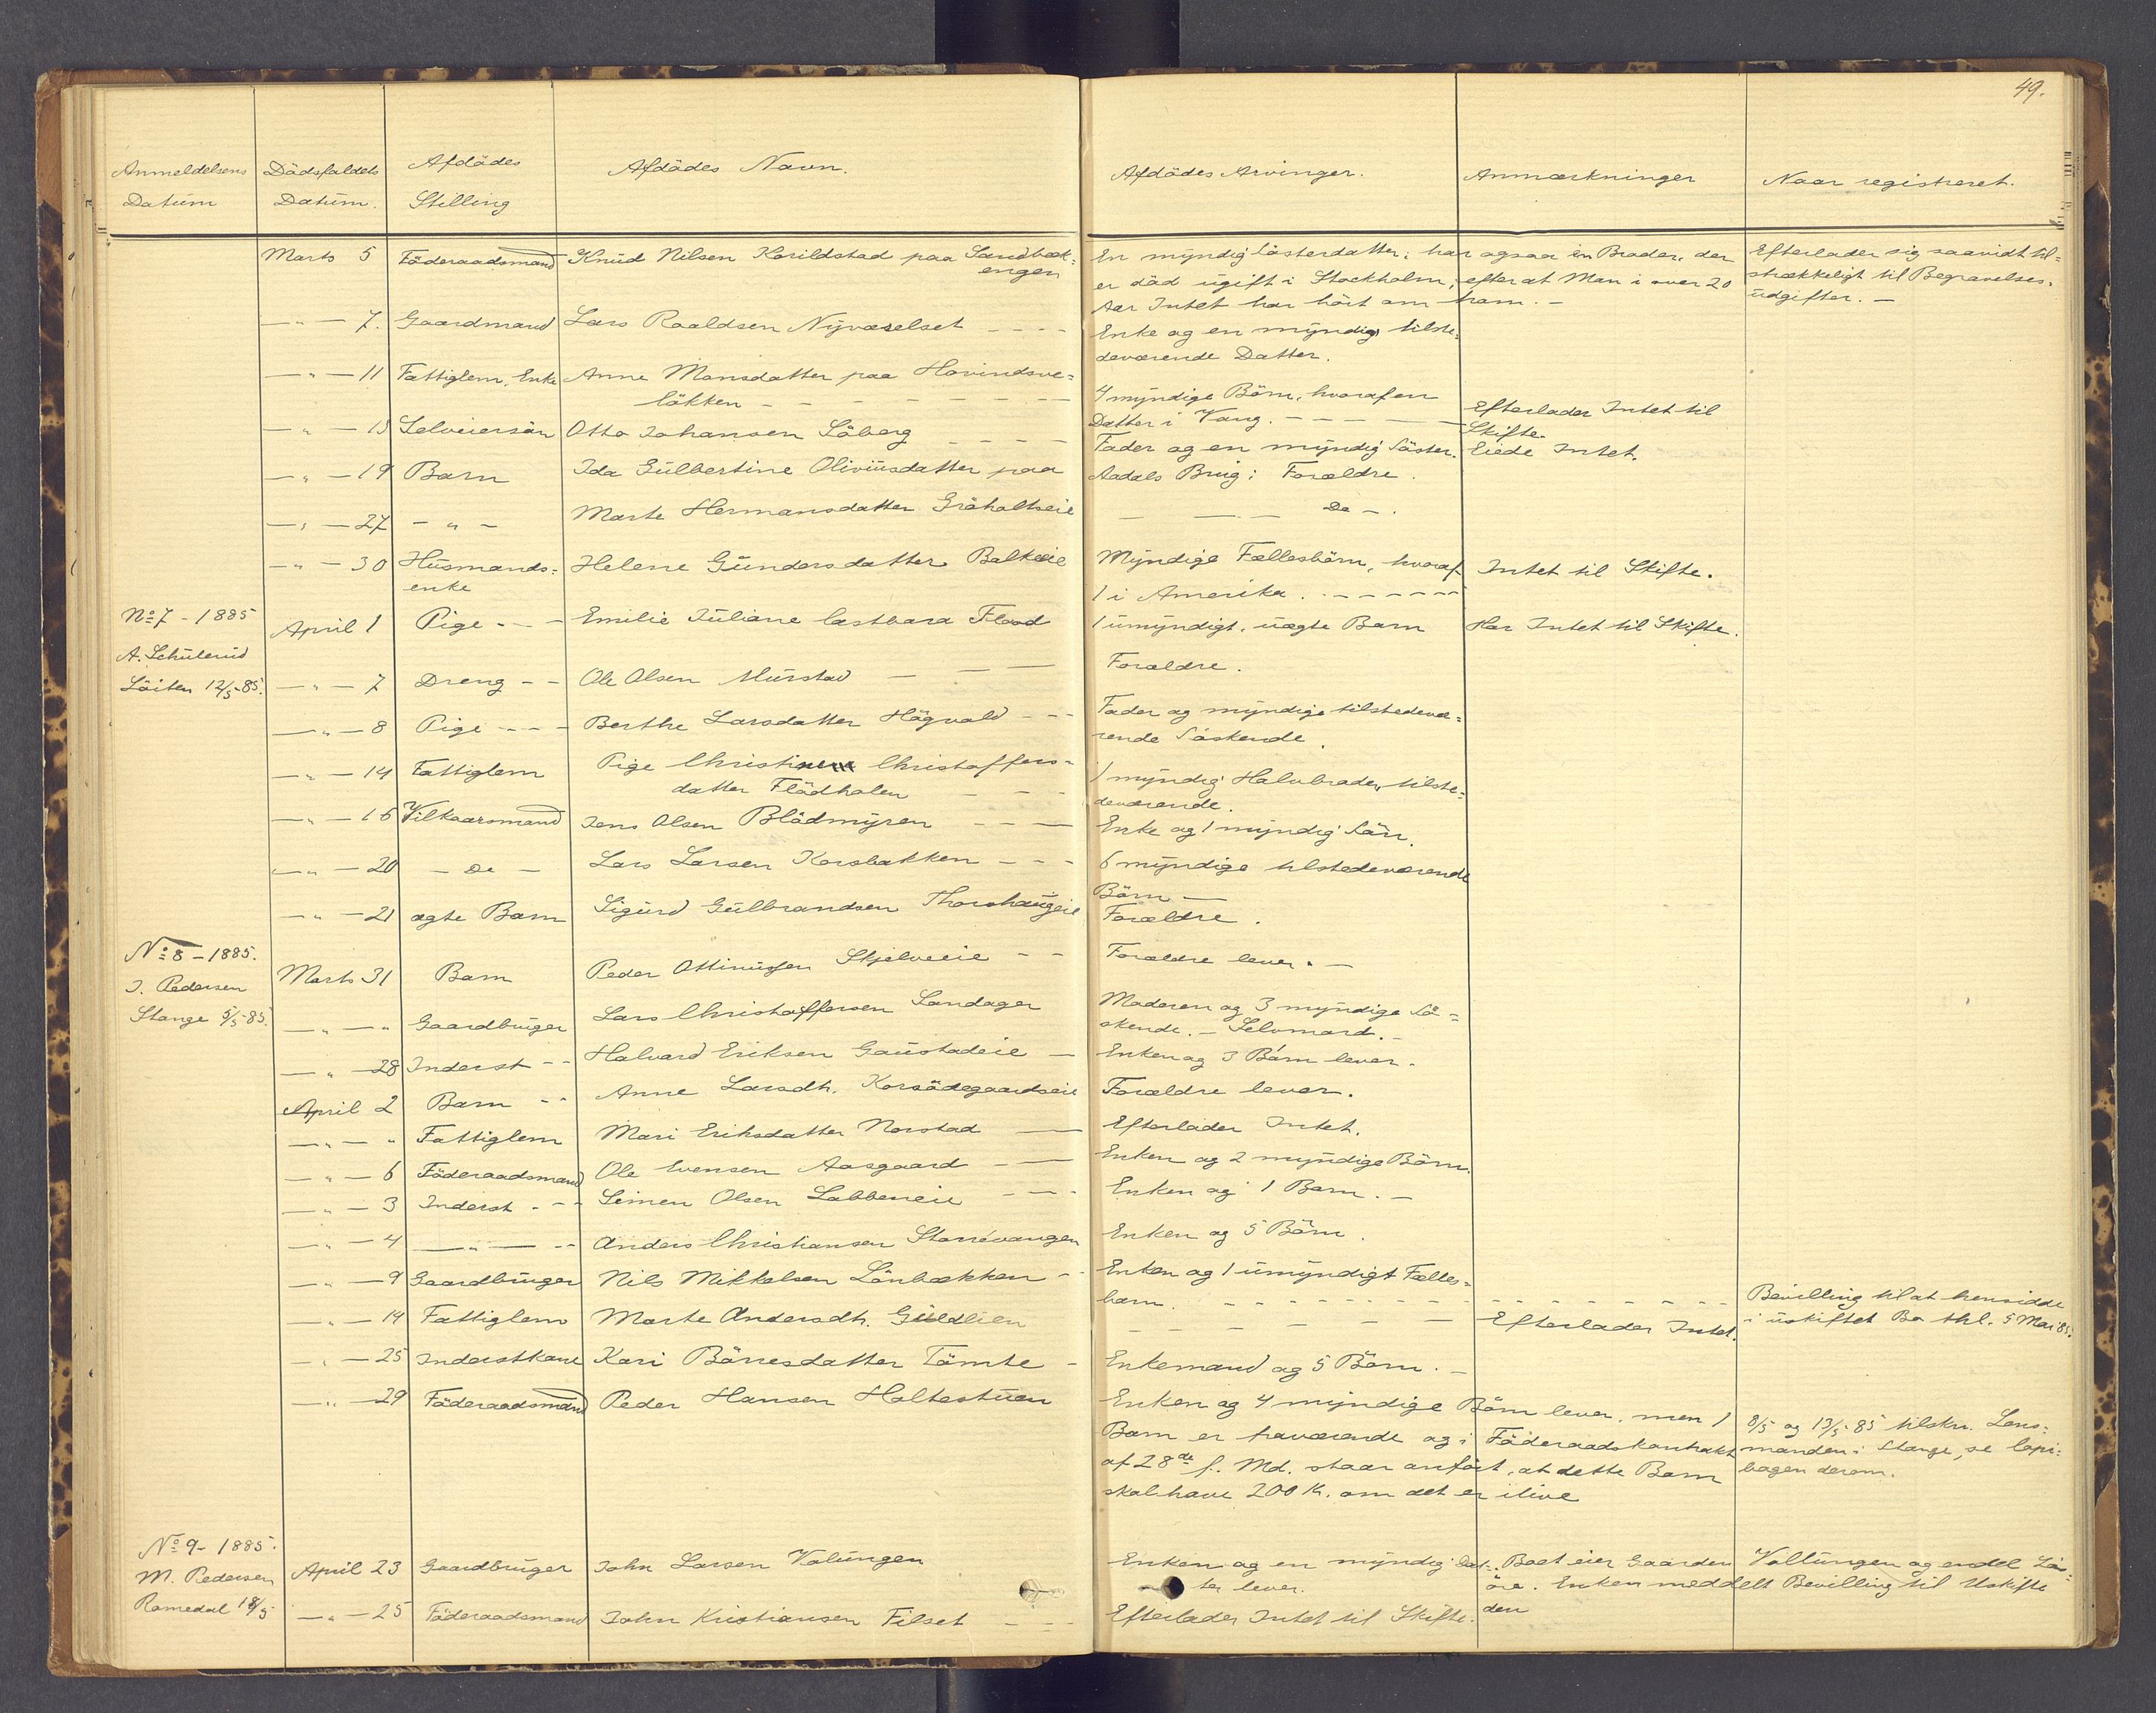 49.
Anmeldelsens Datum
Dödsfaldets Datum.
Afdödes Stilling
Afdödes Navn.
Afdödes Arvinger.
Anmærkninger
Naar registreret.
Marts 5 Föderaadsmand Knud Nilsen Korildstad paa Sandbæk= En myndig Lösterdatter; har ogsaa en Broder, der Efterlader sig saavidt til=
engen er död ugift i Stockholm, efterat Man i over 20 strækkeligt til Begravelses-
Aar Intet har hört om ham. — udgifter. —
—„— 7. Gaardmand Lars Roaldsen Nyværelset - - - - Enke og en myndig tilste=
deværende Datter.
—„— 11 Fattiglem, Enke Anne Monsdatter paa Hovindsve=
lökken - - - - - - 4 myndige Börn, hvoraf en
Datter i Vang. - - - - Efterlader Intet til Skifte.
—„— 15 Selveiersön Otto Johansen Söberg - - - - Fader og en myndig Söster. Eiede Intet.
—„— 19 Barn Ida Gulbertine Oliviusdatter paa Aadals Brug; Forældre.
—„— 27 - „ - Marte Hermansdatter Gröholtseie — — — Do —.
—„— 30 Husmands= Helene Gundersdatter Balkeeie Myndige Fællesbörn, hvoraf Intet til Skifte.
enke 1 i Amerika. - - - - - -
No 7 - 1885 April 1 Pige - - - Emilie Juliane Castbara Flood 1 umyndigt, uægte Barn Har Intet til Skifte.
A. Schulerud
Löiten 12/5-85. —„— 7 Dreng - - Ole Olsen Murstad — — — Forældre.
—„— 8 Pige - - - - Berthe Larsdatter Högvold - - - Fader og myndige tilstedevæ=
rende Söskende.
—„— 14 Fattiglem Pige Christine Christoffers-
datter Flödholen - - - 1 myndig Halvbroder, tilste=
deværende.
—„— 16 Vilkaarsmand Jens Olsen Blödmyren - - — Enke og 1 myndig Sön.
—„— 20 — Do — Lars Larsen Korsbakken - - - 6 myndige tilstedeværende
Börn —
—„— 21 ægte Barn Sigurd Gulbrandsen Thorshaugeie Forældre.
No 8 - 1885. Marts 31 Barn Peder Ottinussen Skjelveeie - - Forældre lever. —
J. Pedersen
Stange 5/5-85. —„— „ Gaardbruger Lars Christoffersen Sandager Moderen og 3 myndige Sö=
skende. — Selvmord. —
—„— 28 Inderst - - Halvard Eriksen Gaustadeie — Enken og 3 Börn lever.
April 2 Barn - - Anne Larsdtr. Korsödegaardseie Forældre lever.
—„— „ Fattiglem Mari Eriksdatter Norstad — Efterlader Intet.
—„— 6 Föderaadsmand Ole Evensen Aasgaard - — Enken og 2 myndige Börn.
—„— 3 Inderst - - - Simen Olsen Labbeneie - - - Enken og 1 Barn. —
—„— 4 —„— - - Anders Christiansen Storrevangen Enken og 5 Börn.
—„— 9 Gaardbruger Nils Mikkelsen Lönbækken - - Enken og 1 umyndigt Fælles=
barn. - - - - - - - - - - - - - Bevilling til at hensidde
i uskiftet Bo thl. 5 Mai 85.
—„— 14 Fattiglem Marte Andersdtr. Guldlien — — — — Efterlader Intet.
—„— 25 Inderstkone Kari Börresdatter Tömte - Enkemand og 5 Börn. —
—„— 29 Föderaadsmand Peder Hansen Holtestuen Enken og 4 myndige Börn lever, men 1 8/5 og 13/5-85 tilskr. Lens=
Barn er fraværende og i Föderaadskontrakt manden i Stange, se Copi=
af 28de f. Md. staar anfört, at dette Barn bogen derom.
skal have 200 Kr. om det er ilive
No 9 - 1885. April 23 Gaardbruger John Larsen Volungen Enken og en myndig Dat= Boet eier Gaarden Vollungen og endel Lös=
M. Pedersen ter lever. öre. Enken meddelt Bevilling til Uskifte
Romedal 18/5 —„— 25 Föderaadsmand John Kristiansen Filset - - - Efterlader Intet til Skifte. den